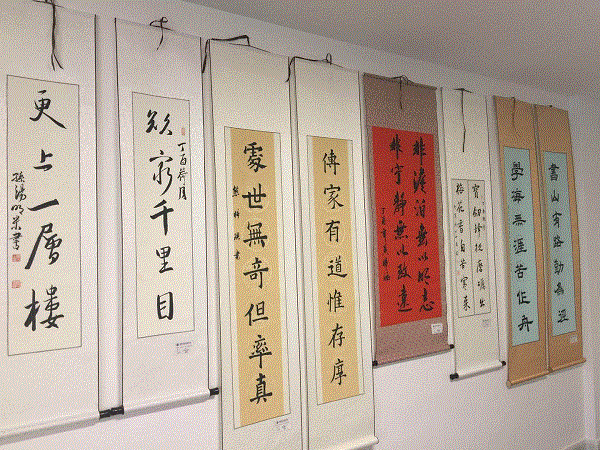 書山有路勤為逕
學海無涯苦作舟
寶劍鋒從磨礪出
梅花香自苦寒來
非澹泊無以明志
非寧靜無以致遠
傳家有道惟存厚
處世無奇但率真
欲窮千里目
丁酉荷月
更上一層樓